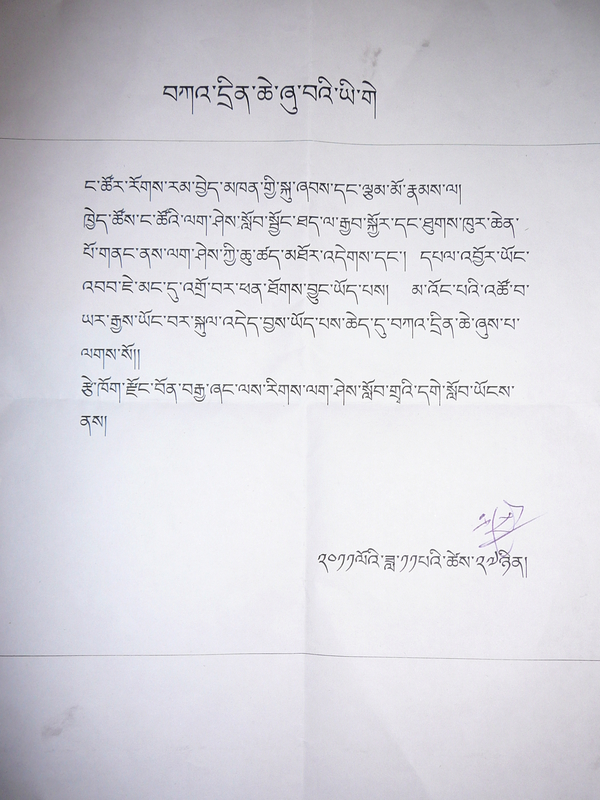 བཀའ་དྲིན་ཆེ་ཞུ་བའི་ཡི་གེ
ང་ཚོར་རོགས་རམ་བྱེད་མཁན་གྱི་སྐུ་ཞབས་དང་ལྕམ་མོ་རྣམས་ལ།
ཁྱེད་ཚོས་ང་ཚོའི་ལག་ཤེས་སློབ་སྦྱོང་ཐད་ལ་རྒྱབ་སྐྱོར་དང་ཐུགས་ཁུར་ཆེན་
པོ་གནང་ནས་ལག་ཤེས་ཀྱི་ཆུ་ཚད་མཐོར་འདེགས་དང་། དཔལ་འབྱོར་ཡོང་
འབབ་ཇེ་མང་དུ་འགྲོ་བར་ཕན་ཐོགས་བྱུང་ཡོད་པས། མ་འོང་པའི་འཚོ་བ་
ཡར་རྒྱས་ཡོང་བར་སྐུལ་འདེད་བྱས་ཡོད་པས་ཆེད་དུ་བཀའ་དྲིན་ཆེ་ཞུས་པ་
ལགས་སོ།།
རྩེ་ཁོག་རྫོང་བོན་བརྒྱ་ཞང་ལས་རིགས་ལག་ཤེས་སློབ་གྲྭའི་དགེ་སློབ་ཡོངས་
ནས།
༢༠༡༡ལོའི་ཟླ་༡༡པའི་ཚེས་༢༧ཉིན།